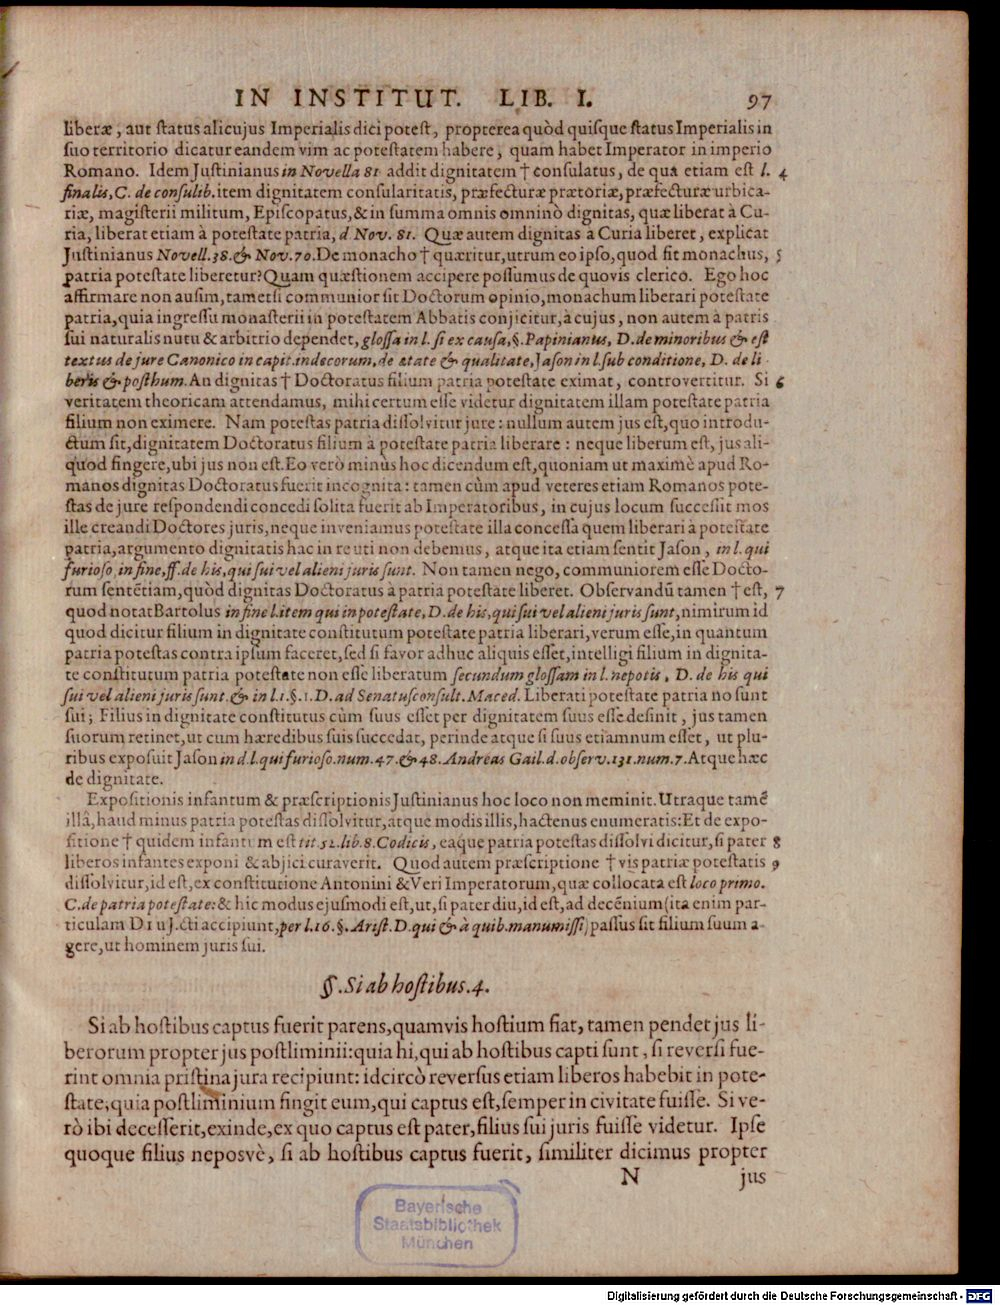 IN INSTITUT. LIB. I. 97
liberæ, aut ſtatus alicujus Imperialis dici poteſt, propterea quòd quiſque ſtatus Imperialis in
ſuo territorio dicatur eandem vim ac poteſtatem habere, quam habet Imperator in imperio
Romano. Idem Juſtinianus in Novella 81 addit dignitatem † conſulatus, de qua etiam eſt l. 4
finalis, C. de conſulib. item dignitatem conſularitatis, præfecturæ prætoriæ, præfecturæ urbica-
riæ, magiſterii militum, Epiſcopatus, & in ſumma omnis omninò dignitas, quæ liberat à Cu-
ria, liberat etiam à poteſtate patria, d Nov. 81. Quæ autem dignitas à Curia liberet, explicat
Juſtinianus Novell. 38. & Nov. 70. De monacho † quæritur, utrum eo ipſo, quod fit monachus, 5
patria poteſtate liberetur? Quam quæſtionem accipere poſſumus de quovis clerico. Ego hoc
affirmare non auſim, tametſi communior ſit Doctorum opinio, monachum liberari poteſtate
patria, quia ingreſſu monaſterii in poteſtatem Abbatis conjicitur, à cujus, non autem à patris
ſui naturalis nutu & arbitrio dependet, gloſſa in l. ſi ex cauſa, §. Papinianus, D. de minoribus & eſt
textus de jure Canonico in capit. indecorum, de ætate & qualitate, Jaſon in l. ſub conditione, D. de li-
beris & poſthum. An dignitas † Doctoratus filium patria poteſtate eximat, controvertitur. Si 6
veritatem theoricam attendamus, mihi certum eſſe videtur dignitatem illam poteſtate patria
filium non eximere. Nam poteſtas patria diſſolvitur jure: nullum autem jus eſt, quo introdu-
ctum ſit, dignitatem Doctoratus filium à poteſtate patria liberare: neque liberum eſt, jus ali-
quod fingere, ubi jus non eſt. Eo verò minùs hoc dicendum eſt, quoniam ut maximè apud Ro-
manos dignitas Doctoratus fuerit incognita: tamen cùm apud veteres etiam Romanos pote-
ſtas de jure reſpondendi concedi ſolita fuerit ab Imperatoribus, in cujus locum ſucceſſit mos
ille creandi Doctores juris, neque inveniamus poteſtate illa conceſſa quem liberari à poteſtate
patria, argumento dignitatis hac in re uti non debemus, atque ita etiam ſentit Jaſon, in l. qui
furioſo, in fine, ff. de his, qui ſui vel alieni juris ſunt. Non tamen nego, communiorem eſſe Docto-
rum ſentẽtiam, quòd dignitas Doctoratus à patria poteſtate liberet. Obſervandũ tamen † eſt, 7
quod notat Bartolus in fine l. item qui in poteſtate, D. de his, qui ſui vel alieni juris ſunt, nimirum id
quod dicitur filium in dignitate conſtitutum poteſtate patria liberari, verum eſſe, in quantum
patria poteſtas contra ipſum faceret, ſed ſi favor adhuc aliquis eſſet, intelligi filium in dignita-
te conſtitutum patria poteſtate non eſſe liberatum ſecundum gloſſam in l. nepotis, D. de his qui
ſui vel alieni juris ſunt. & in l. 1. §. 1. D. ad Senatuſconſult. Maced. Liberati poteſtate patria no ſunt
ſui; Filius in dignitate conſtitutus cùm ſuus eſſet per dignitatem ſuus eſſe deſinit, jus tamen
ſuorum retinet, ut cum hæredibus ſuis ſuccedat, perinde atque ſi ſuus etiamnum eſſet, ut plu-
ribus expoſuit Jaſon in d. l. qui furioſo. num. 47. & 48. Andreas Gail. d. obſerv. 131. num. 7. Atque hæc
de dignitate.
Expoſitionis infantum & præſcriptionis Juſtinianus hoc loco non meminit. Utraque tamẽ
illâ, haud minus patria poteſtas diſſolvitur, atque modis illis, hactenus enumeratis: Et de expo-
ſitione † quidem infantum eſt tit. 52. lib. 8. Codicis, eaque patria poteſtas diſſolvi dicitur, ſi pater 8
liberos infantes exponi & abjici curaverit. Quod autem præſcriptione † vis patriæ poteſtatis 9
diſſolvitur, id eſt, ex conſtitutione Antonini & Veri Imperatorum, quæ collocata eſt loco primo.
C. de patria poteſtate: & hic modus ejuſmodi eſt, ut, ſi pater diu, id eſt, ad decẽnium (ita enim par-
ticulam DIU J.cti accipiunt, per l. 16. §. Ariſt. D. qui & à quib. manumiſſi) paſſus ſit filium ſuum a-
gere, ut hominem juris ſui.
§. Si ab hoſtibus. 4.
Si ab hoſtibus captus fuerit parens, quamvis hoſtium fiat, tamen pendet jus li-
berorum propter jus poſtliminii: quia hi, qui ab hoſtibus capti ſunt, ſi reverſi fue-
rint omnia priſtina jura recipiunt: idcircò reverſus etiam liberos habebit in pote-
ſtate, quia poſtliminium fingit eum, qui captus eſt, ſemper in civitate fuiſſe. Si ve-
rò ibi deceſſerit, exinde, ex quo captus eſt pater, filius ſui juris fuiſſe videtur. Ipſe
quoque filius neposvè, ſi ab hoſtibus captus fuerit, ſimiliter dicimus propter
N jus
Bayerische
Staatsbibliothek
München
Digitalisierung gefördert durch die Deutsche Forschungsgemeinschaft - DFG